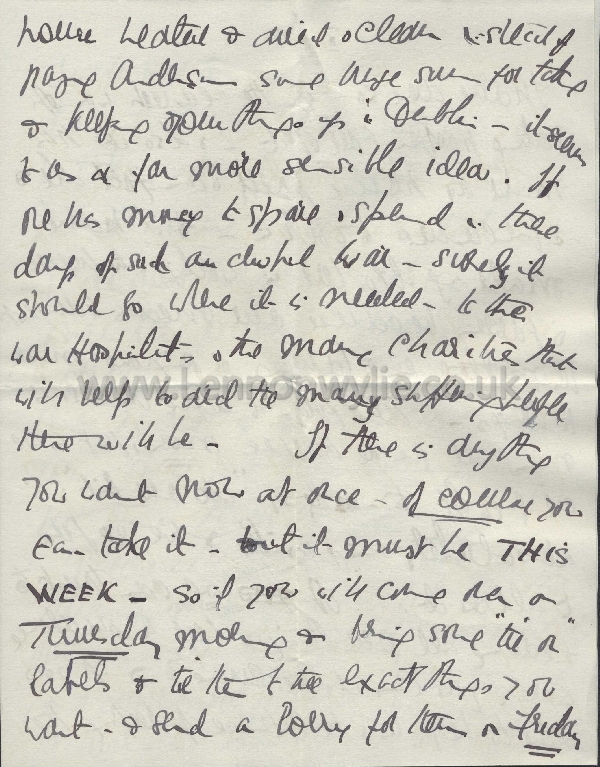 house heated & aired & clean instead of
paying Anderson some huge sum for taking
& keeping your things up in Dublin – it seems
to us a far more sensible idea. If
one has money to spare & spend in these
days of such an awful War – surely it
should go where it is needed – to the
war Hospitals, & the many Charities that
will help to aid the many suffering people
there will be – If there is anything
you want now at once – of course you
can take it – but it must be THIS
WEEK – so if you will come over on
Thursday morning & bring some "tie on"
labels & tie them to the exact things you
want – & send a lorry for them on Friday
www.lennonwylie.co.uk